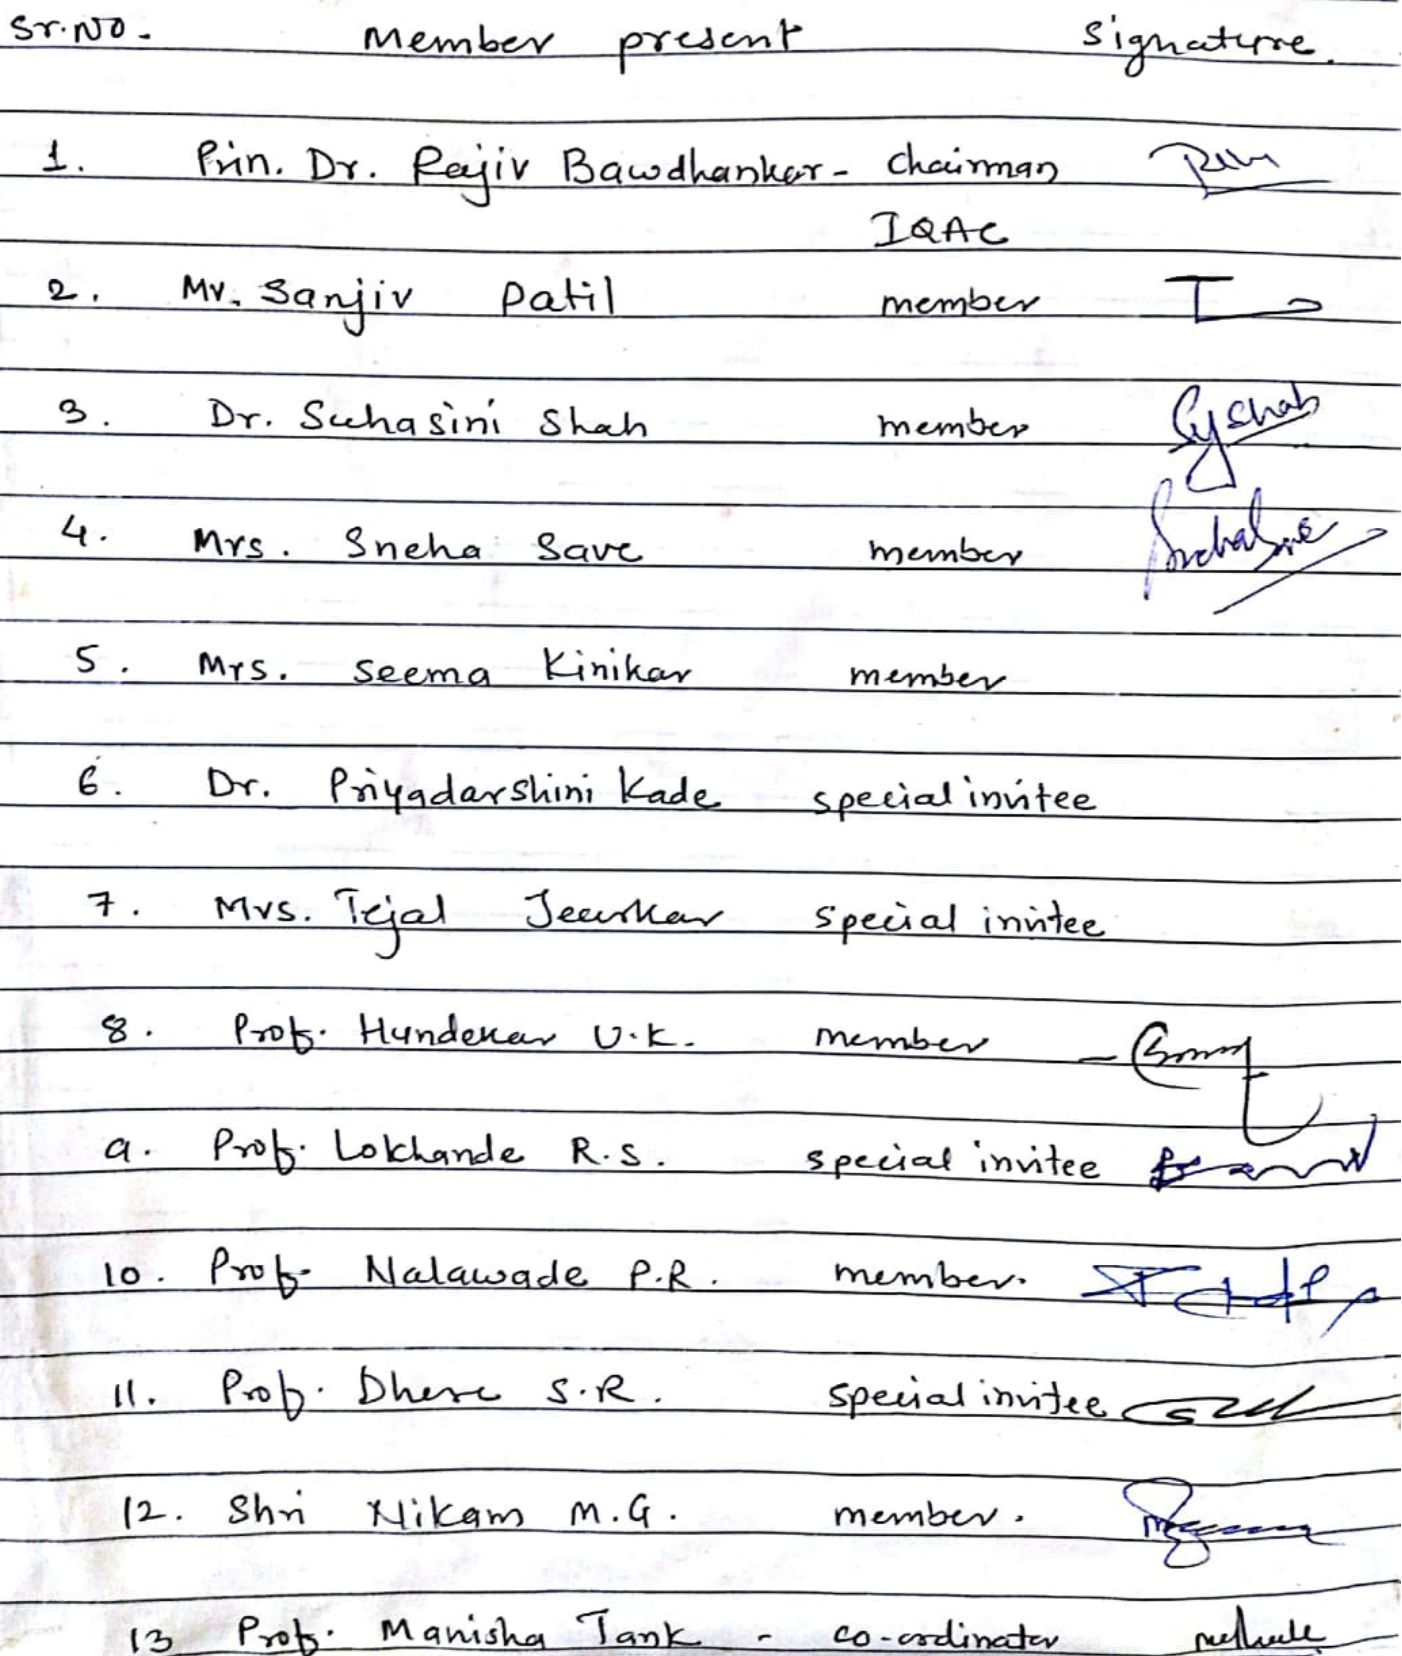 Sr.No. Member present Signature.
1. Prin. Dr. Rajiv Bawdhankar - Chairman
IQAC
2. Mr. Sanjiv Patil member
3. Dr. Suhasini Shah member Syshah
4. Mrs. Sneha Save member SnehaSave
5. Mrs. Seema Kinikar member
6. Dr. Priyadarshini Kade special invitee
7. Mrs. Tejal Jeurkar special invitee
8. Prof. Hundekar U.K. member
9. Prof. Lokhande R.S. special invitee
10. Prof. Nalawade P.R. member.
11. Prof. Dhere S.R. special invitee
12. Shri Nikam M.G. member.
13 Prof. Manisha Tank - co-ordinator